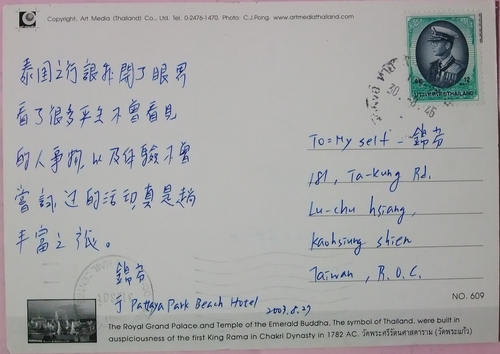 Copyright. Art Media (Thailand) Co., Ltd. Tel. 0-2476-1470. Photo: C.J.Pong. www.artmediathailand.com
泰國之行讓我開了眼界
看了很多平生不曾看見
的人事物,以及体驗不曾
嘗試过的活动真是趟
丰富之旅。
錦芳
于 Pattaya Park Beach Hotel 2003.8.29
To: My self - 錦芳
181, Ta-kung Rd.
Lu-chu hsiang,
kaohsiung shien
Taiwan, R.O.C.
ประเทศไทย THAILAND
12
NO. 609
The Royal Grand Palace and Temple of the Emerald Buddha, The symbol of Thailand, were built in
auspiciousness of the first King Rama in Chakri Dynasty in 1782 AC. วัดพระศรีรัตนศาสดาราม (วัดพระแก้ว)